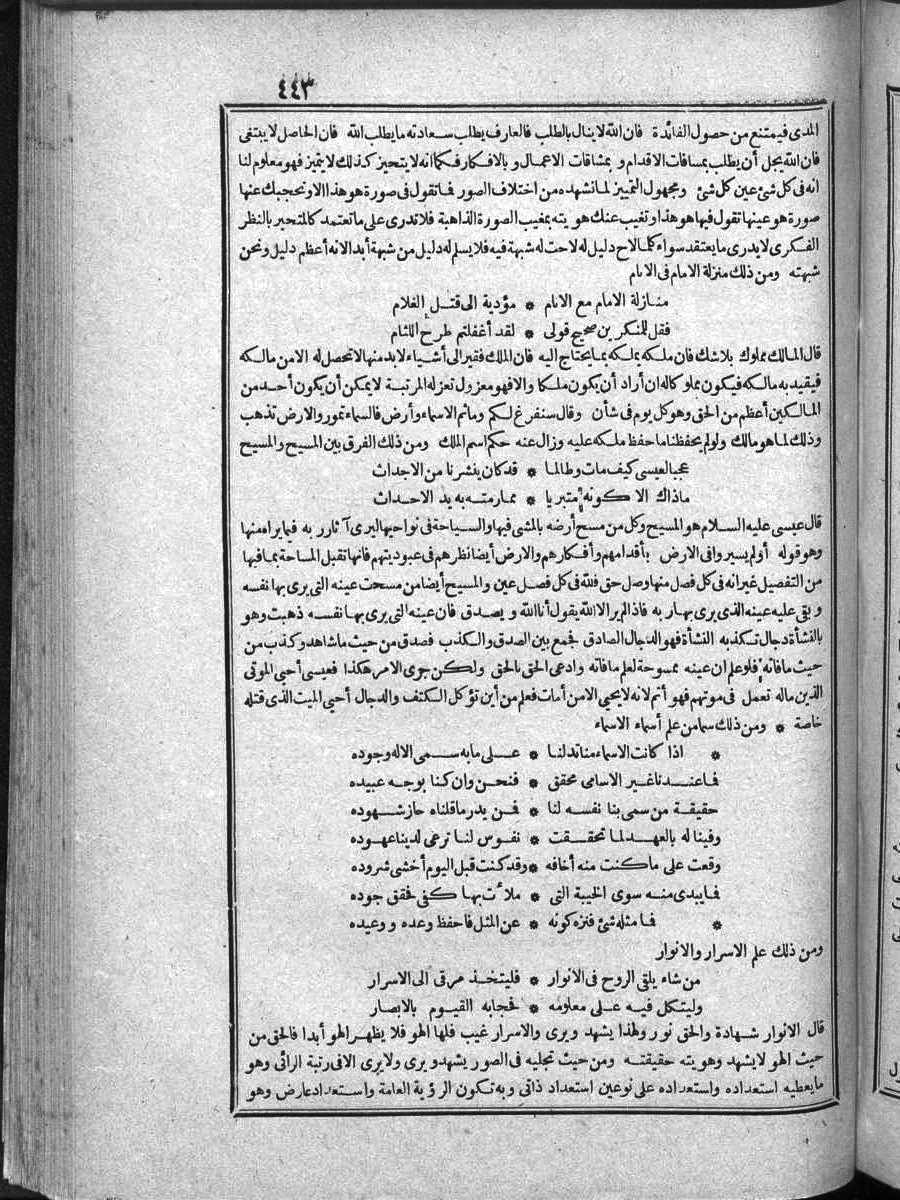 ٤٤٣
المدى فيمتنع من حصول الفائدة فان الله لا ينال بالطلب فالعارف يطلب سعادته ما يطلب الله فان الحاصل لا يبتغى
فان الله يجل أن يطلب بمسافات الاقدام و بمشاقات الاعمال و بالافكار فكما انه لا يتحيز كذلك لا يتميز فهو معلوم لنا
انه فى كل شئ عين كل شئ ومجهول التمييز لما نشهده من اختلاف الصور فما تقول فى صورة هو هذا الا وتحجبك عنها
صورة هو عينها تقول فيها هو هذا وتغيب عنك هويته بمغيب الصورة الذاهبة فلا تدرى على ما تعتمد كالمتحير بالنظر
الفكرى لا يدرى ما يعتقد سواء كلما لاح دليل له لاحت له شبهة فيه فلا يسلم له دليل من شبهة أبدا لانه أعظم دليل ونحن
شبهته ومن ذلك منزلة الامام فى الانام
منازلة الامام مع الانام * مؤدية الى قتل الغلام
فقل للمنكرين صحيح قولى * لقد أغفلتم طرح اللثام
قال المالك مملوك بلا شك فان ملكه يملكه بما يحتاج اليه فان الملك فقير الى أشياء لا بد منها لا تحصل له الا من مالكه
فيقيد به مالكه فيكون مملوكا له ان أراد أن يكون ملكا والا فهو معزول تعزله المرتبة لا يمكن أن يكون أحد من
المالكين أعظم من الحق وهو كل يوم فى شأن وقال سنفرغ لكم وما ثم الا سماء وأرض فالسماء تمور والارض تذهب
وذلك لما هو مالك ولو لم يحفظنا ما حفظ ملكه عليه وزال عنه حكم اسم الملك ومن ذلك الفرق بين المسيح والمسيح
عجبا لعيسى كيف مات وطالما * قد كان ينشرنا من الاجداث
ماذاك الا كونه متبريا * مما رمته به يد الاحداث
قال عيسى عليه السلام هو المسيح وكل من مسح أرضه بالمشى فيها والسياحة فى نواحيها ليرى آثار ربه فما يراه منها
وهو قوله أولم يسيروا فى الارض بأقدامهم وأفكارهم والارض أيضا نظرهم فى عبوديتهم فانها تقبل المساحة بما فيها
من التفصيل غير انه فى كل فصل منها وصل حق فلله فى كل فصل عين والمسيح أيضا من مسحت عينه التى يرى بها نفسه
و بقى عليه عينه الذى يرى بها ربه فاذا لم ير الا الله يقول أنا الله و يصدق فان عينه التى يرى بها نفسه ذهبت وهو
بالنشأة دجال تكذبه النشأة فهو الدجال الصادق فجمع بين الصدق والكذب فصدق من حيث ما شاهد وكذب من
حيث ما فاته فلو علم ان عينه ممسوحة لعلم ما فاته وادعى الحق بالحق ولكن جرى الامر هكذا فعيسى أحيى الموتى
الذين ماله تعمل فى موتهم فهو أتم لانه لا يحيى الا من أمات فعلم من أين تؤكل الكتف والدجال أحيى الميت الذى قتله
خاصة * ومن ذلك سما من علم أسماء الاسماء
* اذا كانت الاسماء منا تدلنا * على ما به سمى الاله وجوده
فما عندنا غير الاسامى محقق * فنحن وان كنا بوجه عبيده
حقيقة من سمى بنا نفسه لنا * فمن يدر ما قلناه حاز شهوده
وفينا له بالعهد لما تحققت * نفوس لنا ترعى لدينا عهوده
وقعت على ما كنت منه أخافه * وقد كنت قبل اليوم أخشى شروده
فما يبدى منه سوى الخيبة التى * ملأت بها كفى فحقق جوده
* فما مثله شئ فنزه كونه * عن المثل فاحفظ وعده ووعيده
ومن ذلك علم الاسرار والانوار
من شاء يلقى الروح فى الانوار * فليتخذ مرقى الى الاسرار
وليتكل فيه على معلومه * فحجابه القيوم بالابصار
قال الانوار شهادة والحق نور ولهذا يشهد ويرى والاسرار غيب فلها الهو فلا يظهر الهو أبدا فالحق من
حيث الهو لا يشهد وهويته حقيقته ومن حيث تجليه فى الصور يشهد و يرى ولا يرى الا فى رتبة الرائى وهو
ما يعطيه استعداده واستعداده على نوعين استعداد ذاتى و به تكون الرؤية العامة واستعداد عارض وهو